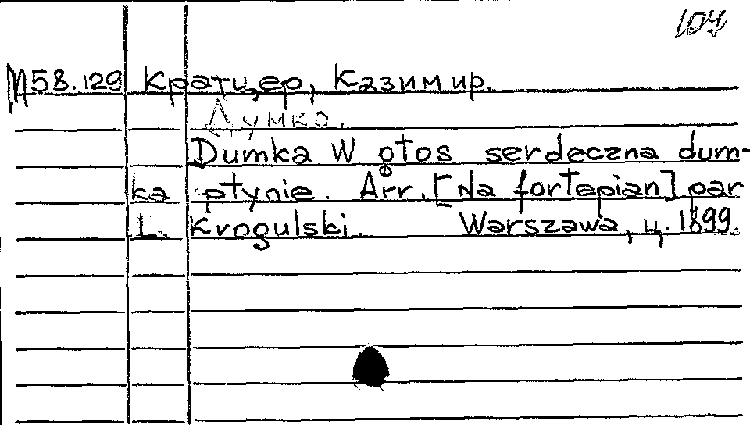 104
М58.129 Кратцер, Казимир.
Думка.
Dumka W głos serdeczna dum-
ka płynie. Arr. [Na fortepian] par
L. Krogulski. Warszawa, ц. 1899.